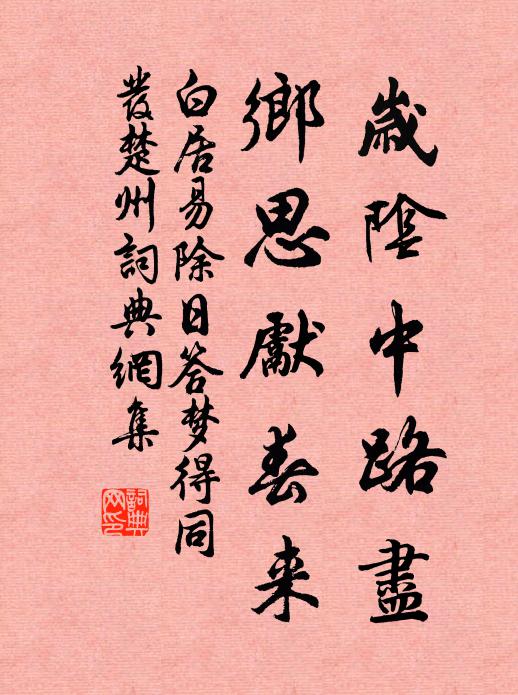 歲陰中路盡
鄉思獻春来
白居易除日答梦得同
發楚州詞典網集
詞典
网印